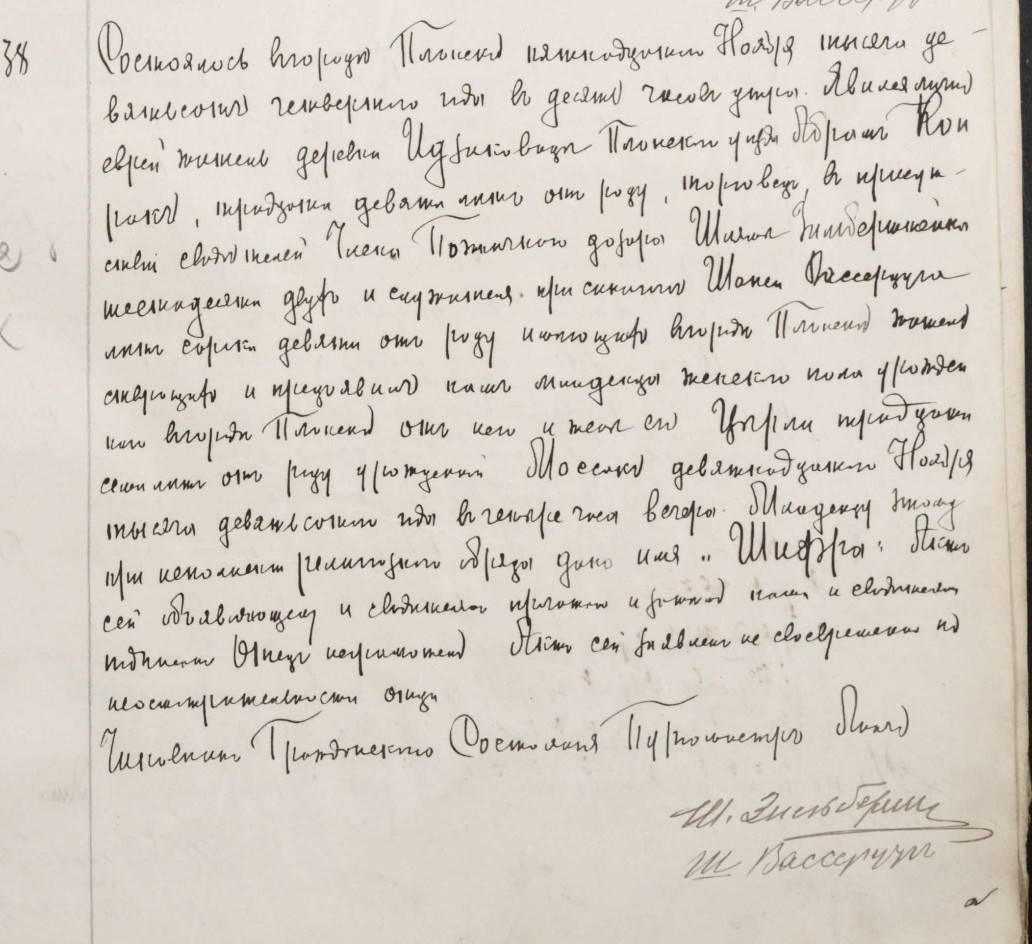 38
Состоялось въ городѣ Плонскѣ пятнадцатаго Ноября тысяча де-
вятьсотъ четвертаго года въ десять часовъ утра. Явился лично
еврей житель деревни Плонскаго уѣзда Абрамъ Кон
тридцати девяти лѣтъ отъ роду, торговецъ, въ присут-
ствіи свидѣтелей Члена Божничнаго дозора
шестидесяти двухъ и служителя при синагогѣ Вассерцуга
лѣтъ сорока девяти отъ роду въ городѣ Плонскѣ житель
ствующихъ и предъявилъ намъ младенца женскаго пола урожден
наго въ городѣ Плонскѣ отъ него и жены его Цырли тридцати
семи лѣтъ отъ роду урожденной девятнадцатаго Ноября
тысяча девятьсотаго года въ четыре часа вечера. Младенцу этому
при исполненіи религіознаго обряда дано имя „Шифра“ Актъ
сей объявляющему и свидѣтелямъ прочитанъ и нами и свидѣтелями
подписанъ Отецъ неграмотенъ Актъ сей заявленъ не своевременно по
неосмотрительности отца
Чиновникъ Гражданскаго Состоянія Бургомистръ
Ш. Зильберштейн
Ш Вассерцугъ